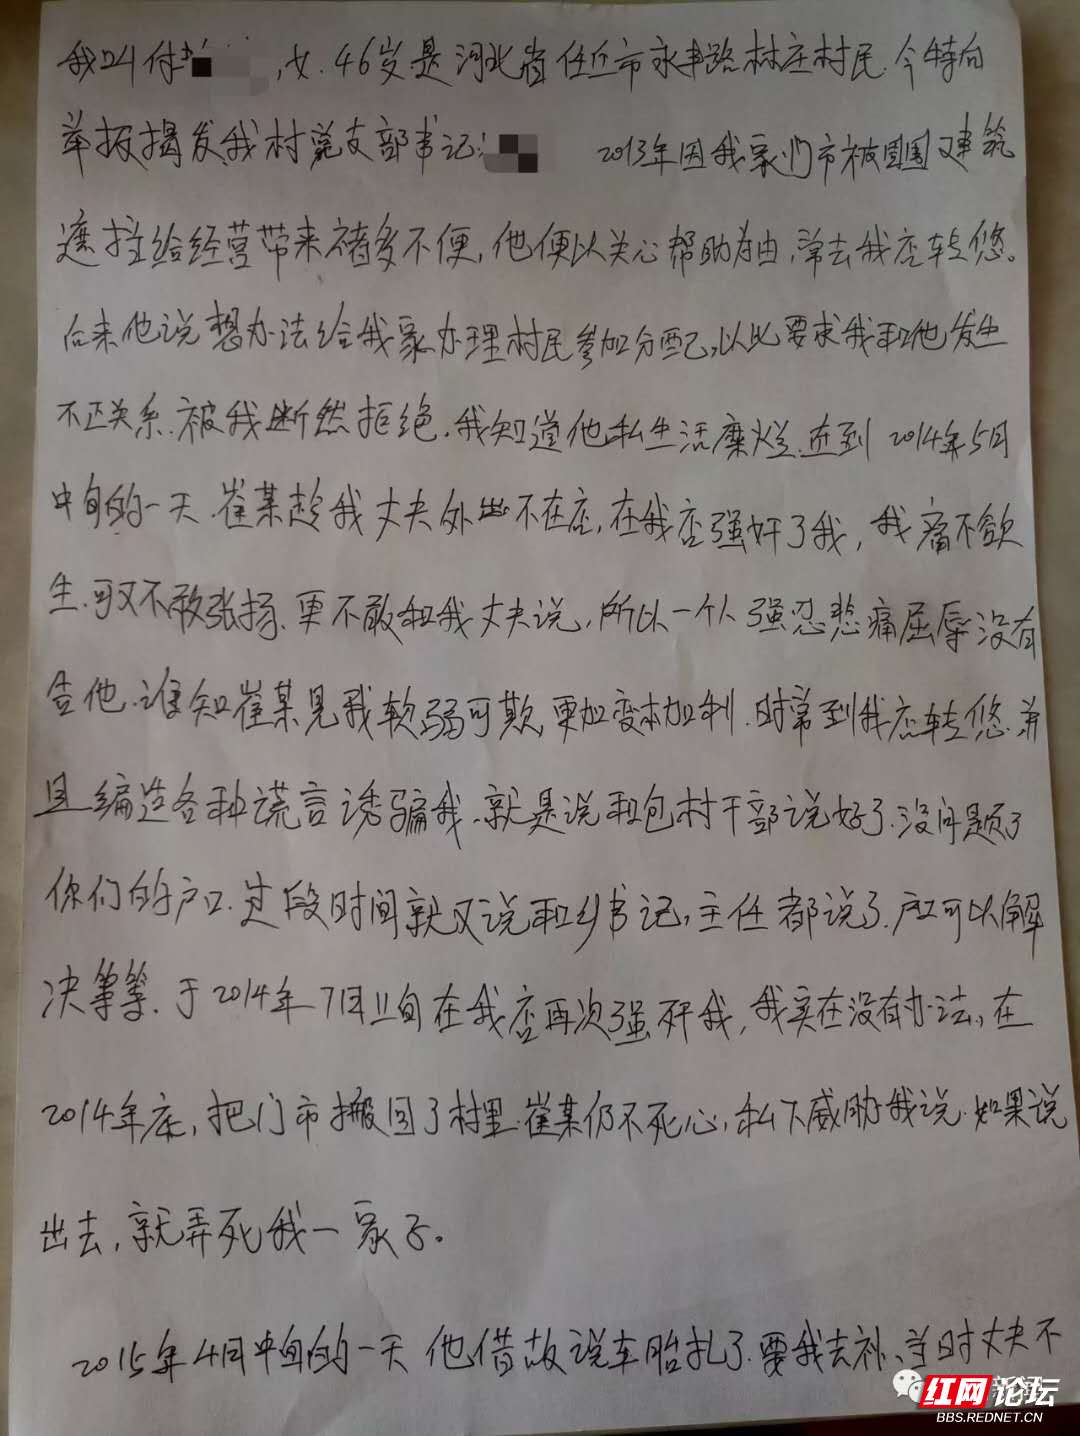 我叫付，女.46岁是河北省任丘市永丰路林庄村民.今特向
举报揭发我村党支部书记: 2013年因我家门市被周围建筑
遮挡给经营带来诸多不便，他便以关心帮助为由，常去我店转悠。
后来他说想办法给我家办理村民参加分配，以此要求我和他发生
不正关系.被我断然拒绝.我知道他私生活糜烂.直到2014年5月
中旬的一天.崔某趁我丈夫外出不在店，在我店强奸了我，我痛不欲
生.可又不敢张扬、更不敢和我丈夫说，所以一个人强忍悲痛屈辱没有
告他.谁知崔某见我软弱可欺更加变本加利.时常到我店转悠.并
且编造各种谎言诱骗我.就是说和包村干部说好了.没问题了
你们的户口.过段时间就又说和乡书记，主任都说了.户口可以解
决等等.于2014年7月上旬在我店再次强奸我，我实在没有办法，在
2014年底，把门市搬回了村里.崔某仍不死心，私下威胁我说.如果说
出去，就弄死我一家子。
2015年4月中旬的一天他借故说车胎扎了.要我去补、当时丈夫不
红网论坛
BBS.REDNET.CN